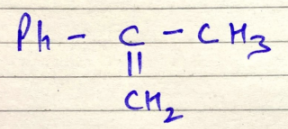 Ph - C - CH3
||
CH2